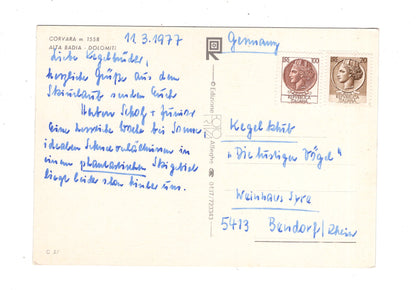 CORVARA m 1558
ALTA BADIA - DOLOMITI
11.3.1977
Liebe Kegelbrüder,
herzliche Grüße aus dem
Skiurlaub senden Euch
Herbert Scholz + Junior
eine herrliche Woche bei Sonne
idealen Schneeverhältnissen in
einem phantastischen Skigebiet
liegt leider schon hinter uns.
Germany
100
20
Kegelklub
"Die lustigen Vögel"
Weinhaus Syre
5413 Bendorf/Rhein